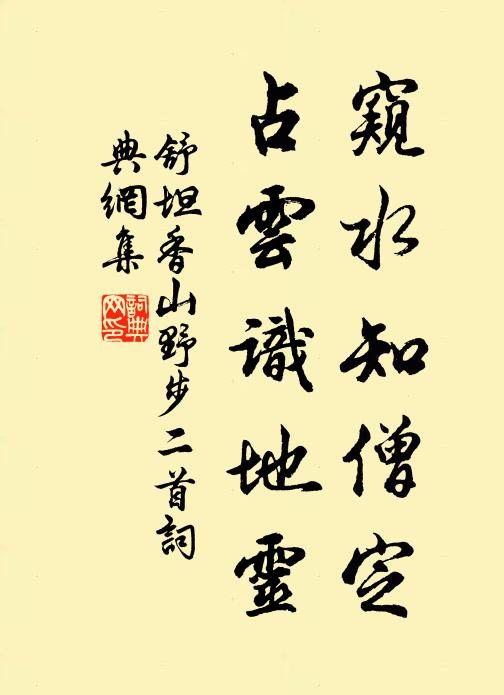 窺水知僧定
占雲識地靈
舒坦香山野步二首詞
典網集
詞典
网印